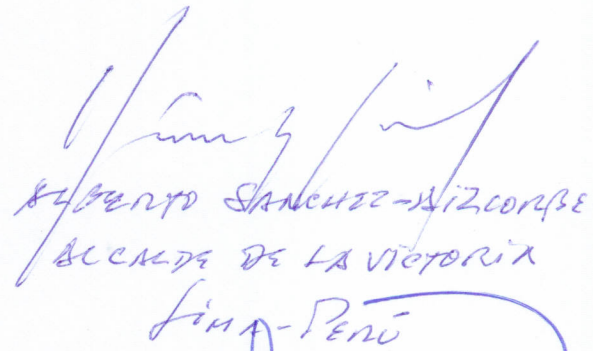 ALBERTO SANCHEZ-AIZCORBE
ALCALDE DE LA VICTORIA
LIMA-PERÚ